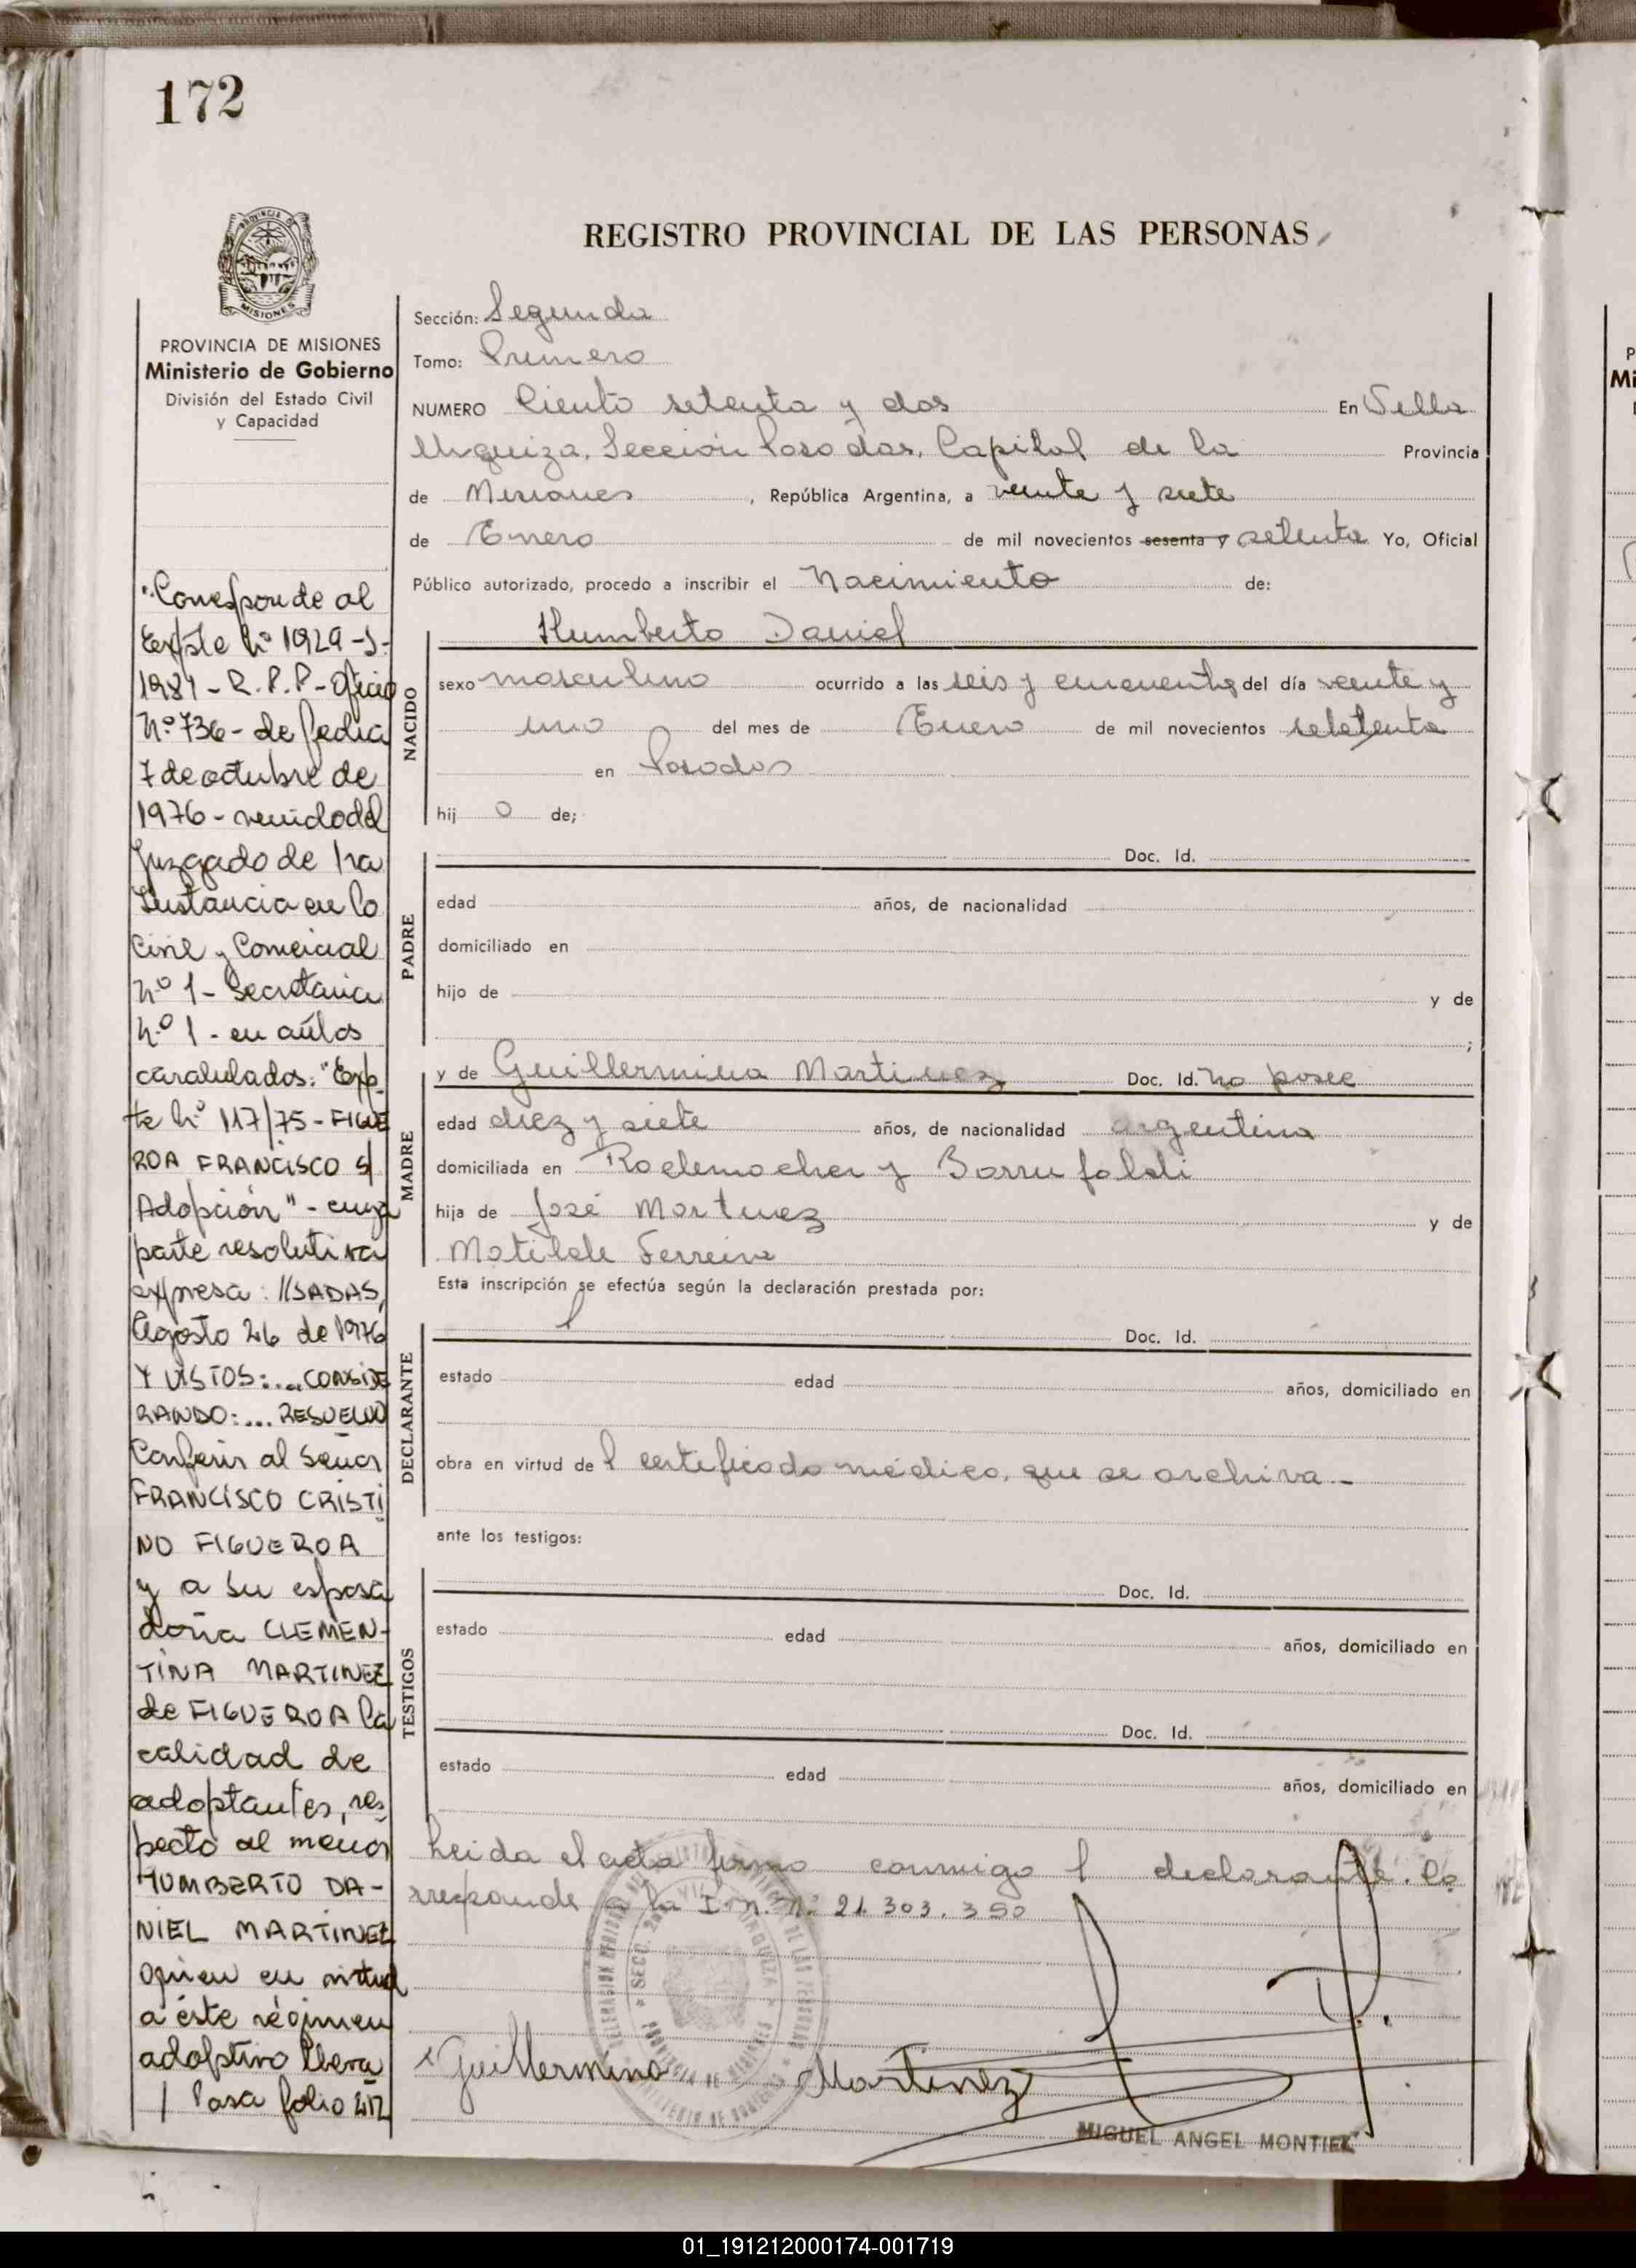 172
PROVINCIA DE MISIONES
Ministerio de Gobierno
División del Estado Civil
y Capacidad
"Corresponde al
Expte Nº 1929-S-
1981 - R.P.P - Oficio
Nº 736 - de fecha
7 de octubre de
1976 - venido del
Juzgado de 1ra
Instancia en lo
Civil y Comercial
Nº 1 - Secretaria
Nº 1 - en autos
caratulados: "Exp
te Nº 117/75 - FIGUE
ROA FRANCISCO S/
Adopción" - cuya
parte resolutiva
expresa: //SADAS,
Agosto 26 de 1976
Y VISTOS:... CONSIDE
RANDO:... RESUELVO
Conferir al Señor
FRANCISCO CRISTI
NO FIGUEROA
y a su esposa
doña CLEMEN-
TINA MARTINEZ
de FIGUEROA la
calidad de
adoptantes, res
pecto al menor
HUMBERTO DA-
NIEL MARTINEZ
quien en virtud
a éste régimen
adoptivo llevará
/ Pasa folio 212
REGISTRO PROVINCIAL DE LAS PERSONAS
Sección: Segunda
Tomo: Primero
NUMERO Ciento setenta y dos En Villa
Urquiza, Sección Posadas, Capital de la Provincia
de Misiones, República Argentina, a veinte y siete
de Enero de mil novecientos sesenta y setenta Yo, Oficial
Público autorizado, procedo a inscribir el Nacimiento de:
NACIDO
Humberto Daniel
sexo masculino ocurrido a las seis y cincuenta del día veinte y
uno del mes de Enero de mil novecientos setenta
en Posadas
hij o de;
PADRE
Doc. Id.
edad años, de nacionalidad
domiciliado en
hijo de y de
;
MADRE
y de Guillermina Martinez Doc. Id. no posee
edad diez y siete años, de nacionalidad argentina
domiciliada en Rademacher y
hija de José Martinez y de
Matilde Ferreira
Esta inscripción se efectúa según la declaración prestada por:
DECLARANTE
Doc. Id.
estado edad años, domiciliado en
obra en virtud de l certificado médico, que se archiva.-
ante los testigos:
TESTIGOS
Doc. Id.
estado edad años, domiciliado en
Doc. Id.
estado edad años, domiciliado en
Leida el acta firma conmigo l declarante. Co
rresponde la I.M. Nº 21.303.350
Guillermina Martinez
MIGUEL ANGEL MONTIEL
01_191212000174-001719